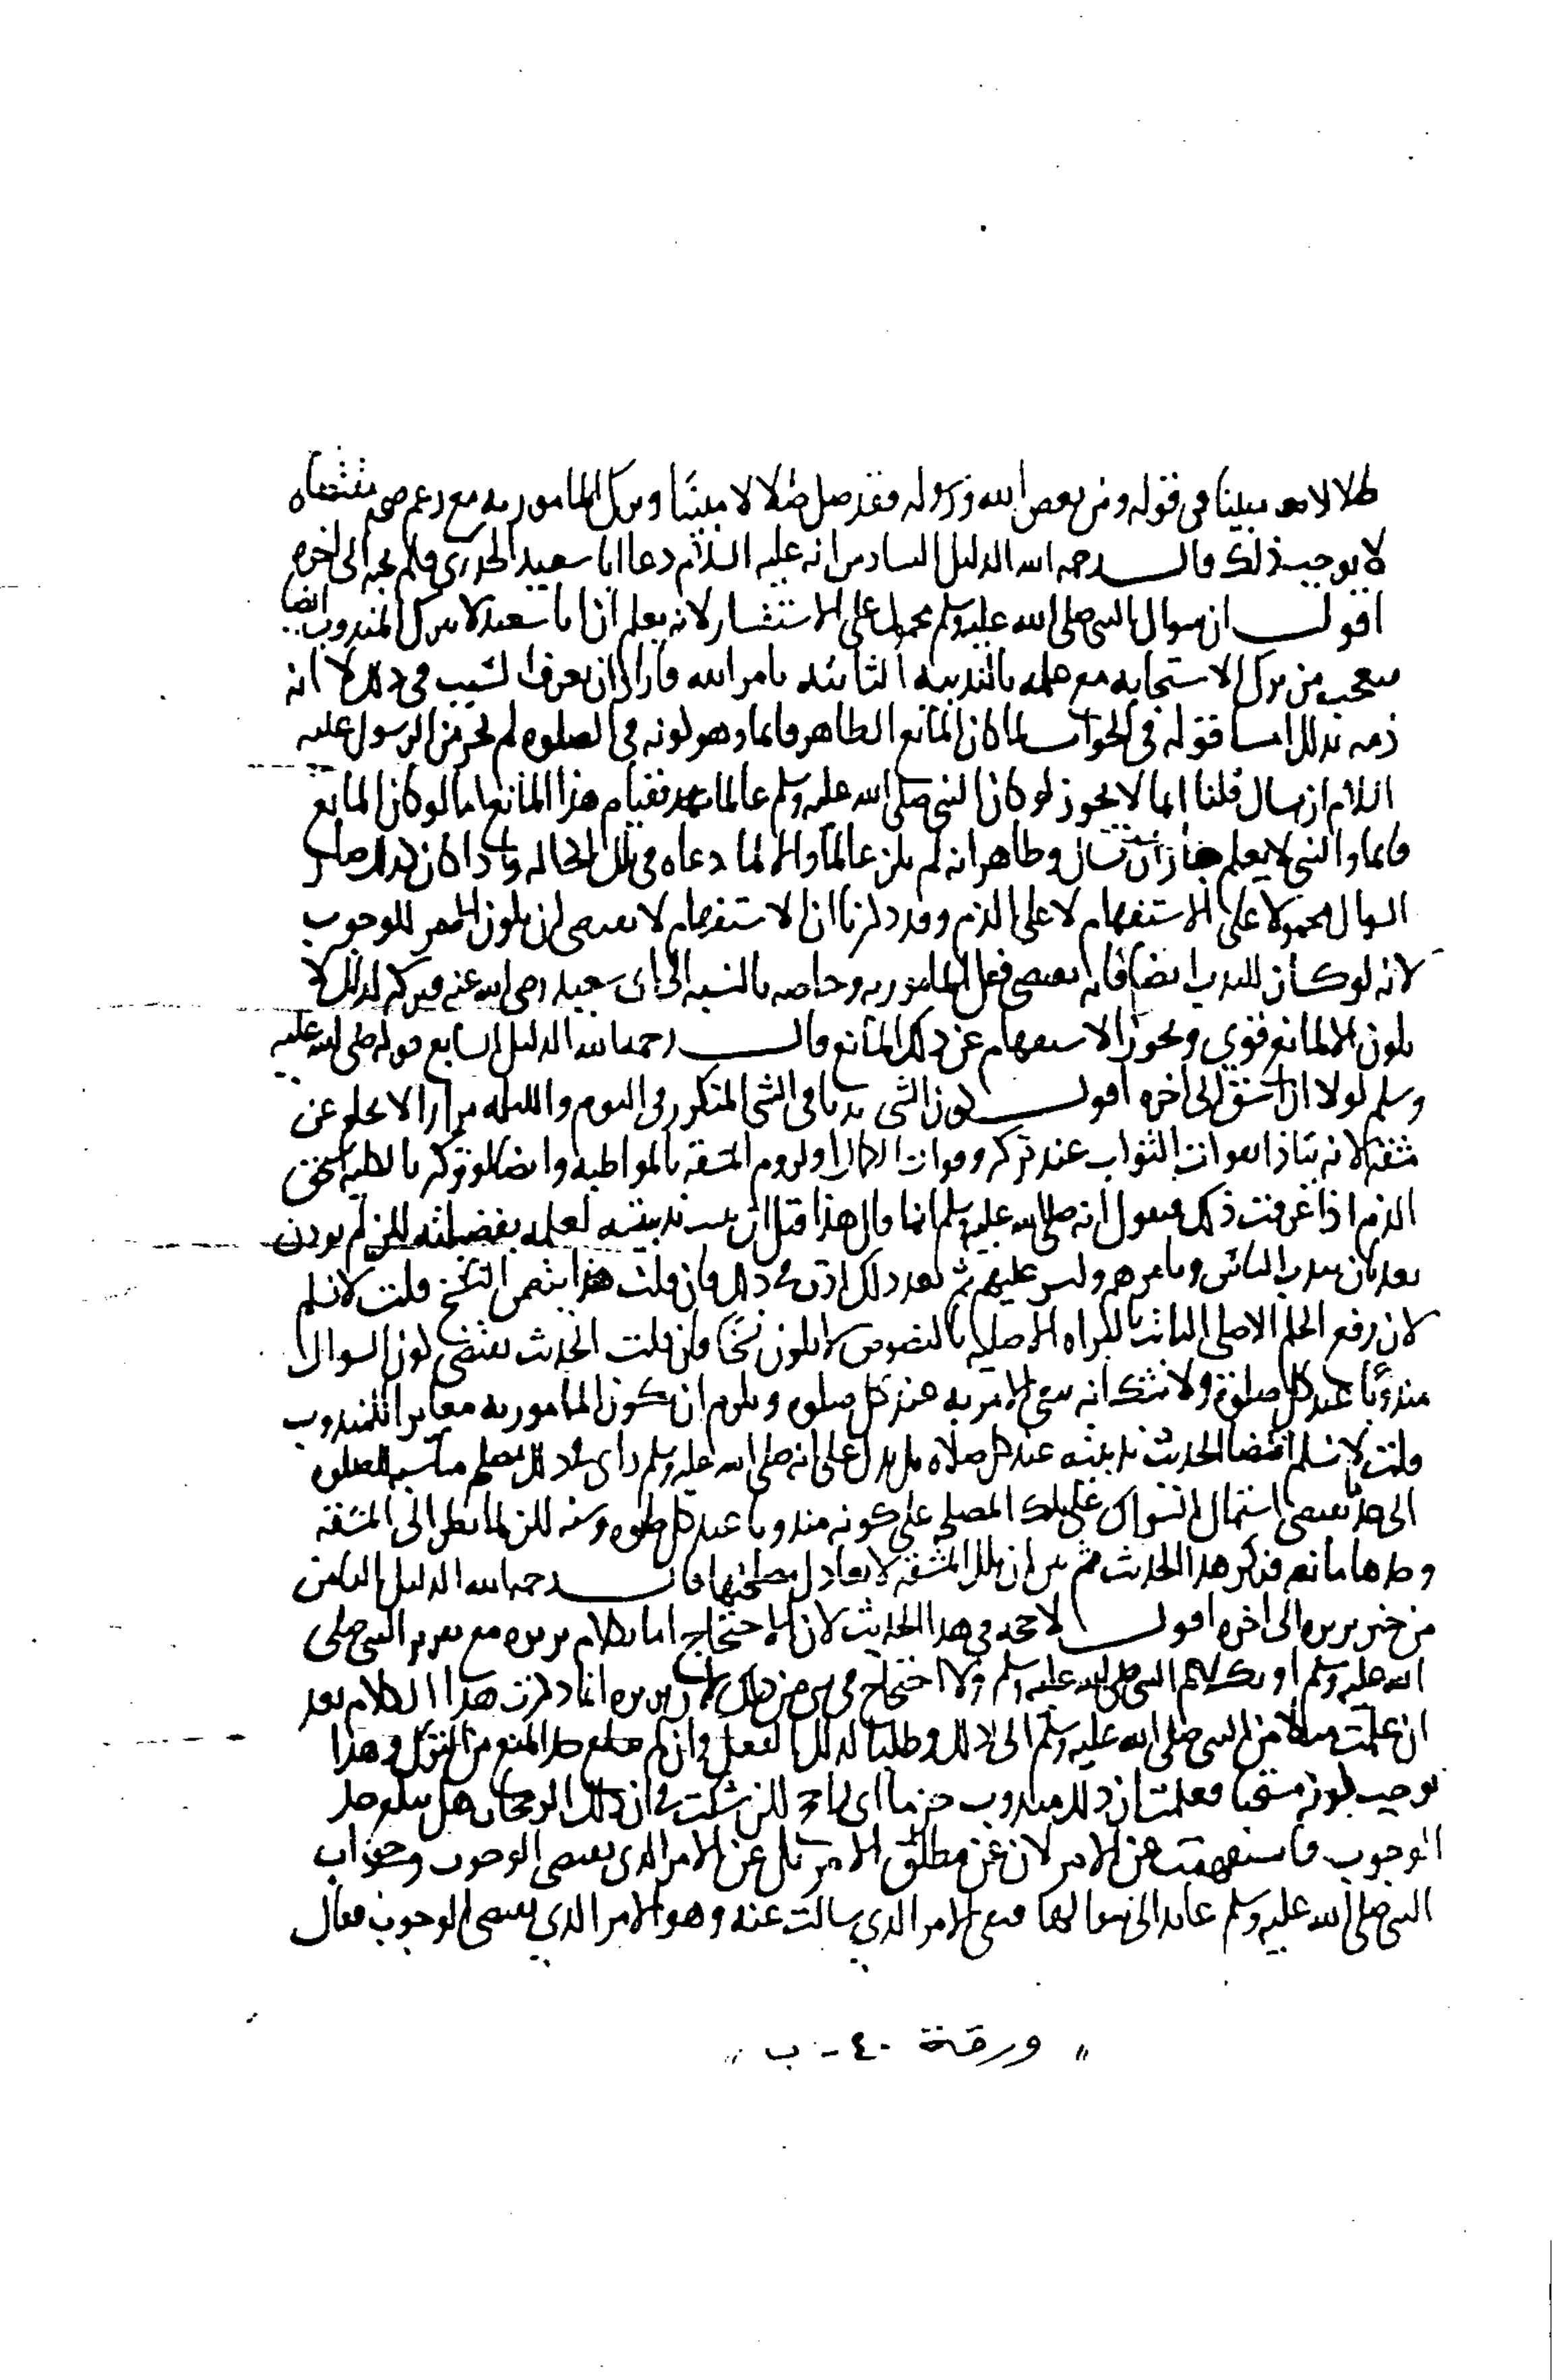 ضلالا مبينا في قوله ومن يعص الله ورسوله فقد ضل ضلالا مبينا وترك المامور به مع زعم مقتضاه
لا يوجب ذلك قال رحمه الله الدليل السادس انه عليه السلام دعا ابا سعيد الخدري فلم يجبه الى اخره
اقول ان سوال النبي صلى الله عليه وسلم محمول على الاستفسار لانه يعلم ان ابا سعيد لا يترك المندوب ايضا
فتعجب من ترك الاستجابة مع علمه بالندبية الثابتة بامر الله فاراد ان يعرف السبب في ذلك لا انه
ذمه بذلك اما قوله في الجواب لما كان المانع الظاهر قائما وهو كونه في الصلوة لم يجز من الرسول عليه
السلام ان يسال قلنا انما لا يجوز لو كان النبي صلى الله عليه وسلم عالما بقيام هذا المانع اما لو كان المانع
قائما والنبي لا يعلم جاز ان يسال وظاهر انه لم يكن عالما والا لما دعاه في تلك الحالة واذا كان كذلك صار
السوال محمولا على الاستفهام لا على الذم وقد ذكرنا ان الاستفهام لا يقتضي ان يكون الامر للوجوب
لانه لو كان للندب ايضا فانه يقتضي فعل المامور به وخاصة بالنسبة الى ابي سعيد رضي الله عنه فتركه لذلك لا
يكون الا لمانع قوي ويجوز الاستفهام عن ذلك المانع قال رحمه الله الدليل السابع قوله صلى الله عليه
وسلم لولا ان اشق الى اخره اقول كون الشي ندبا في الشي المتكرر في اليوم والليلة مرارا لا يخلو عن
مشقة لانه يتاذى بفوات الثواب عند تركه وفوات الكمال ولزوم المشقة بالمواظبة وايضا لو تركه بالكلية استحق
الذم اذا عرفت ذلك فنقول انه صلى الله عليه وسلم انما قال هذا قبل ان يثبت ندبيته لعلمه بفضيلته لكن لم يوذن
بعد بان يندب الناس ويامرهم وليس عليهم ثم بعد ذلك اذن في ذلك فان قلت هذا يتضمن النسخ قلت لا نسلم
لان رفع الحكم الاصلي الثابت بالبراة الاصلية بالنصوص لا يكون نسخا فان قلت الحديث يقتضي كون السواك
مندوبا عند كل صلوة ولا شك انه نفى الامر به عند كل صلوة ويلزم ان يكون المامور به مغايرا للمندوب
قلت لا نسلم اقتضا الحديث ندبيته عند كل صلاة بل يدل على انه صلى الله عليه وسلم راى في ذلك مصلحة مناسبة للصلوة
الى حد يقتضي استعمال السواك على ذلك المصلي على كونه مندوبا عند كل صلوة وسنة لكن لما نظر الى المشقة
وجدها مانعة فذكر هذا الحديث ثم بين ان تلك المشقة لا يعادل مصلحتها قال رحمه الله الدليل الثامن
من خبر بريرة الى اخره اقول لا حجة في هذا الحديث لان الاحتجاج اما بكلام بريرة مع تقرير النبي صلى
الله عليه وسلم او بكلام النبي صلى الله عليه وسلم ولا احتجاج في شي من ذلك لان بريرة انما ذكرت هذا الكلام بعد
ان علمت ميلا من النبي صلى الله عليه وسلم الى ذلك وطلبا لذلك الفعل وان لم يبلغ حد المنع من الترك وهذا
يوجب كونه مستحبا فعلمت ان ذلك مندوب جزما اي راجح لكن شكت في ان ذلك الرجحان هل يبلغ حد
الوجوب فاستفهمت عن الامر لا عن مطلق الامر بل عن الامر الذي يقتضي الوجوب وجواب
النبي صلى الله عليه وسلم عائد الى سوالها فنفى الامر الذي سالت عنه وهو الامر الذي يقتضي الوجوب فقال
" ورقة ٤٠ - ب "